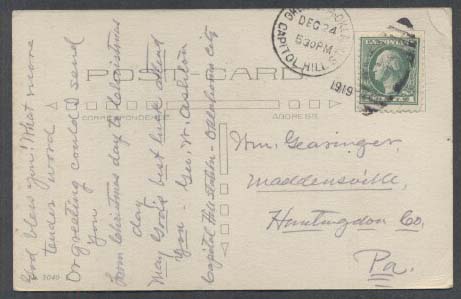 DEC 24
6 30 PM
CAPITOL HILL STA.
1919
POST CARD
CORRESPONDENCE
ADDRESS
God bless you! What more
tender word
Or greeting could I send
you
From Christmas day to Christmas
day
May God's best luck attend
you - Geo. W. Ashton
Capitol Hill Station - Oklahoma City
Wm. Geasinger,
Maddensville,
Huntingdon Co.
Pa.